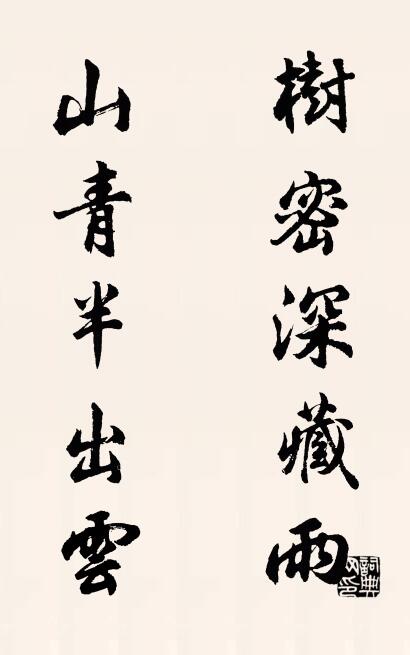 樹密深藏雨
山青半出雲